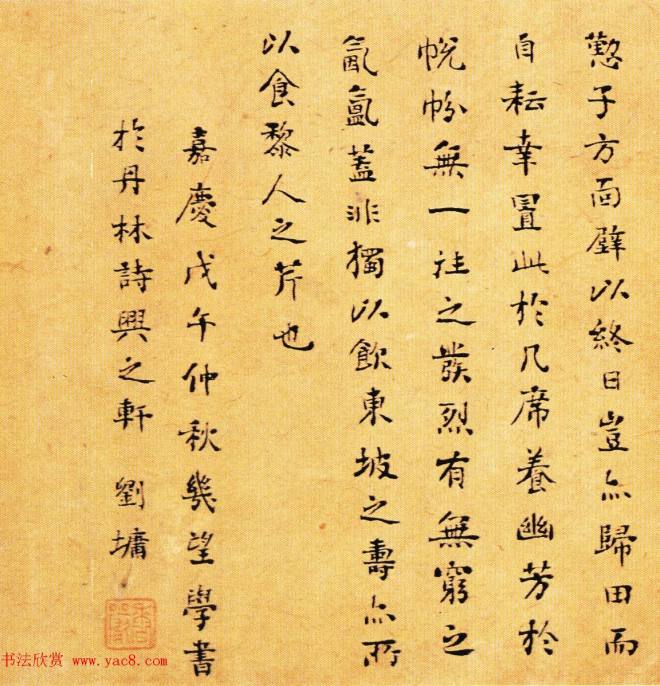 懃子方面壁以終日豈亦歸田而
自耘幸置此於几席養幽芳於
帨帉無一往之發烈有無窮之
氤氳蓋非獨以飲東坡之壽亦所
以食黎人之芹也
嘉慶戊午仲秋幾望學書
於丹林詩興之軒 劉墉
书法欣赏 www.yac8.com